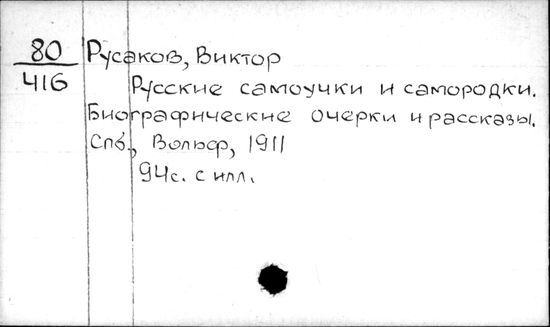 80 Русаков, Виктор
416 Русские самоучки и самородки.
Биографические очерки и рассказы.
Спб., Вольф, 1911
94с. с илл.